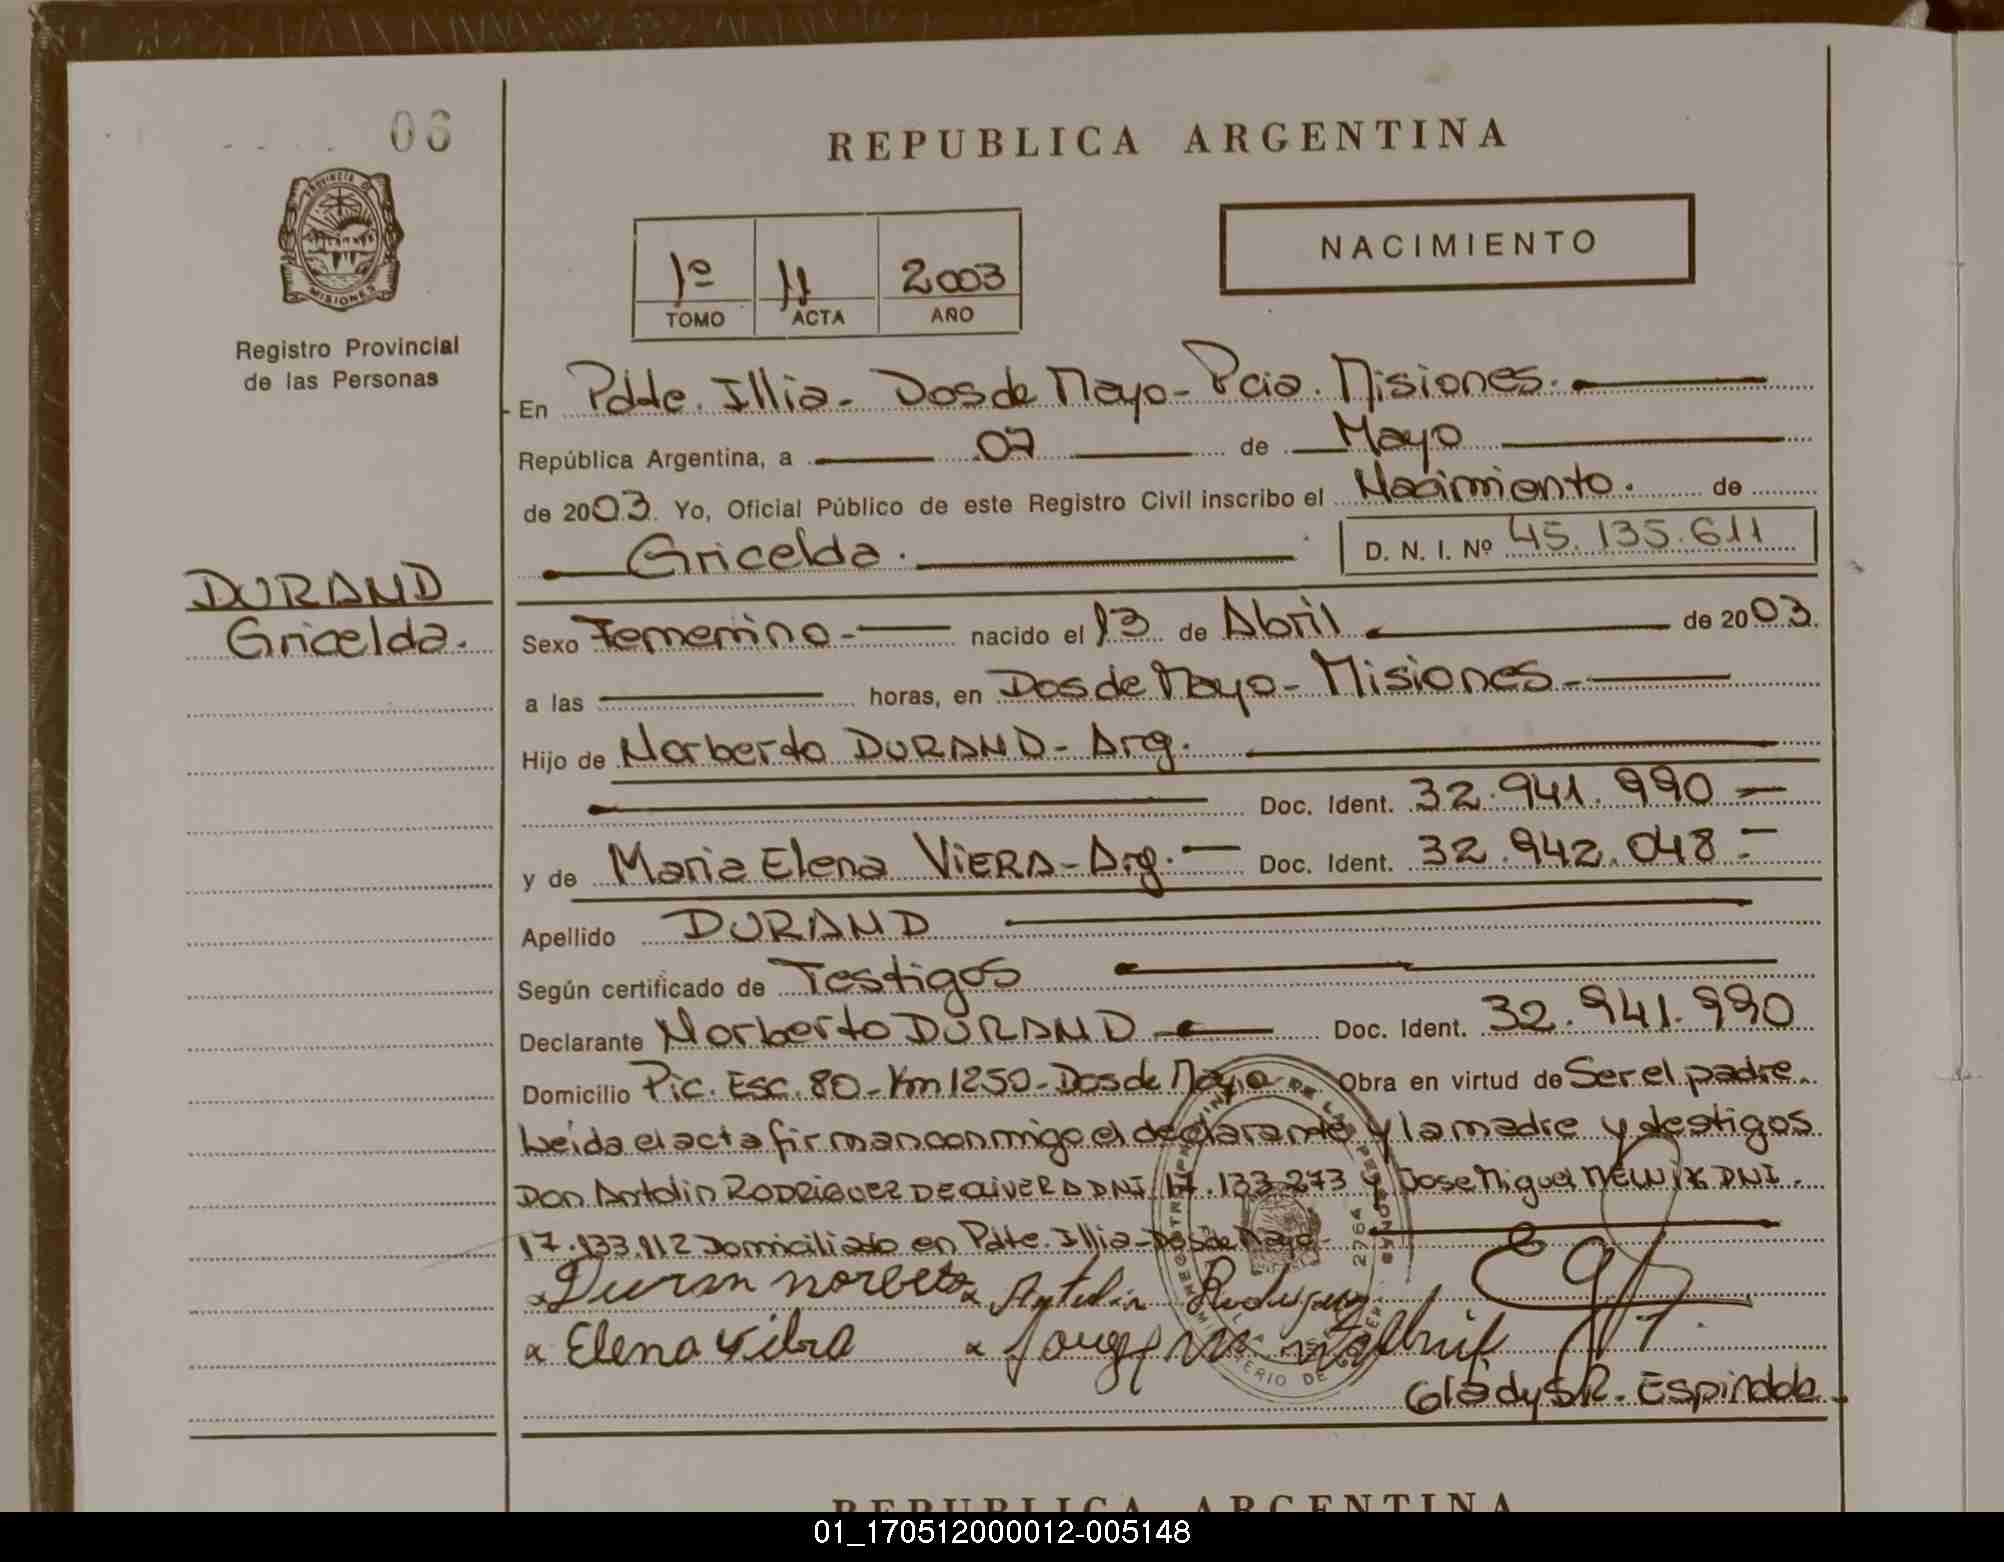 06
REPUBLICA ARGENTINA
PROVINCIA DE
MISIONES
NACIMIENTO
1º 11 2003
TOMO ACTA AÑO
Registro Provincial
de las Personas
En Pdte. Illia - Dos de Mayo - Pcia. Misiones.
República Argentina, a 07 de Mayo
de 2003. Yo, Oficial Público de este Registro Civil inscribo el Nacimiento. de
Gricelda. D. N. I. Nº 45.135.611
DURAND
Gricelda.
Sexo Femenino - nacido el 13 de Abril de 2003.
a las horas, en Dos de Mayo - Misiones -
Hijo de Norberto DURAND - Arg.
Doc. Ident. 32.941.990 -
y de Maria Elena VIERA - Arg. - Doc. Ident. 32.942.048 -
Apellido DURAND
Según certificado de Testigos
Declarante Norberto DURAND Doc. Ident. 32.941.990
Domicilio Pic. Esc. 80 - Km 1250 - Dos de Mayo Obra en virtud de Ser el padre.
Leída el acta firman conmigo el declarante y la madre y testigos
Don Antolin RODRIGUEZ DE OLIVERA DNI 17.133.273 y Jose Miguel DNI.
17.133.112 Domiciliado en Pdte. Illia - Dos de Mayo -
Duran norbeto Antolin Rodriguez
Elena Viera
Gladys R. Espindola.
REPUBLICA ARGENTINA
01_170512000012-005148